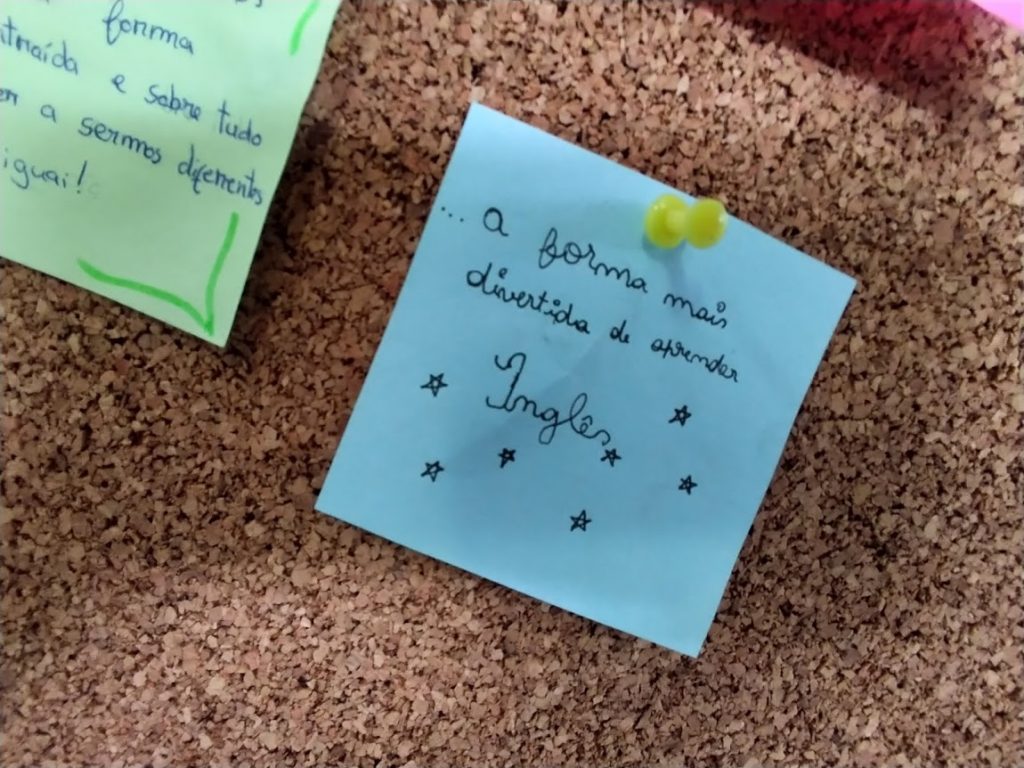 forma
e sobre tudo
a sermos diferentes
iguai!
... a forma mais
divertida de aprender
Ingles